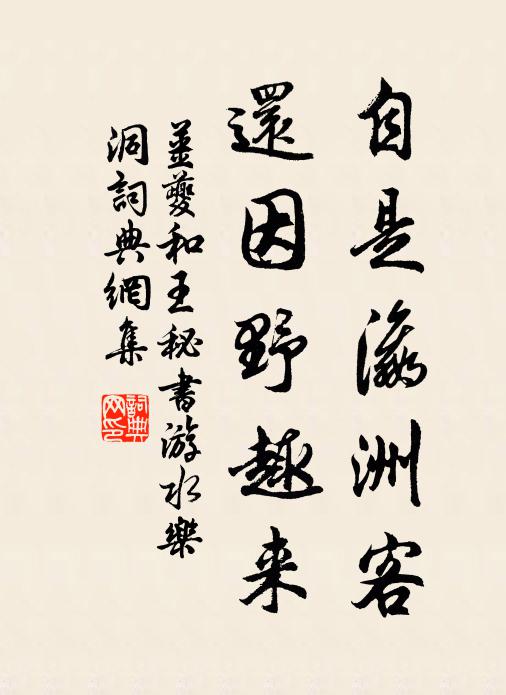 自是瀛洲客
還因野趣来
姜夔和王秘書游水樂
洞詞典網集
詞典
网印